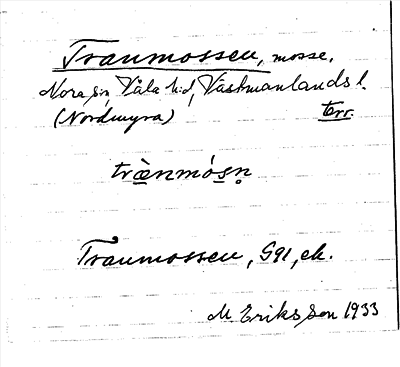 Tranmossen, mosse.
Nora sn, Våla hd, Västmanlands l.
(Nordmyra) terr.
trànmósn
Tranmossen, G91, ek.
M Eriksson 1933